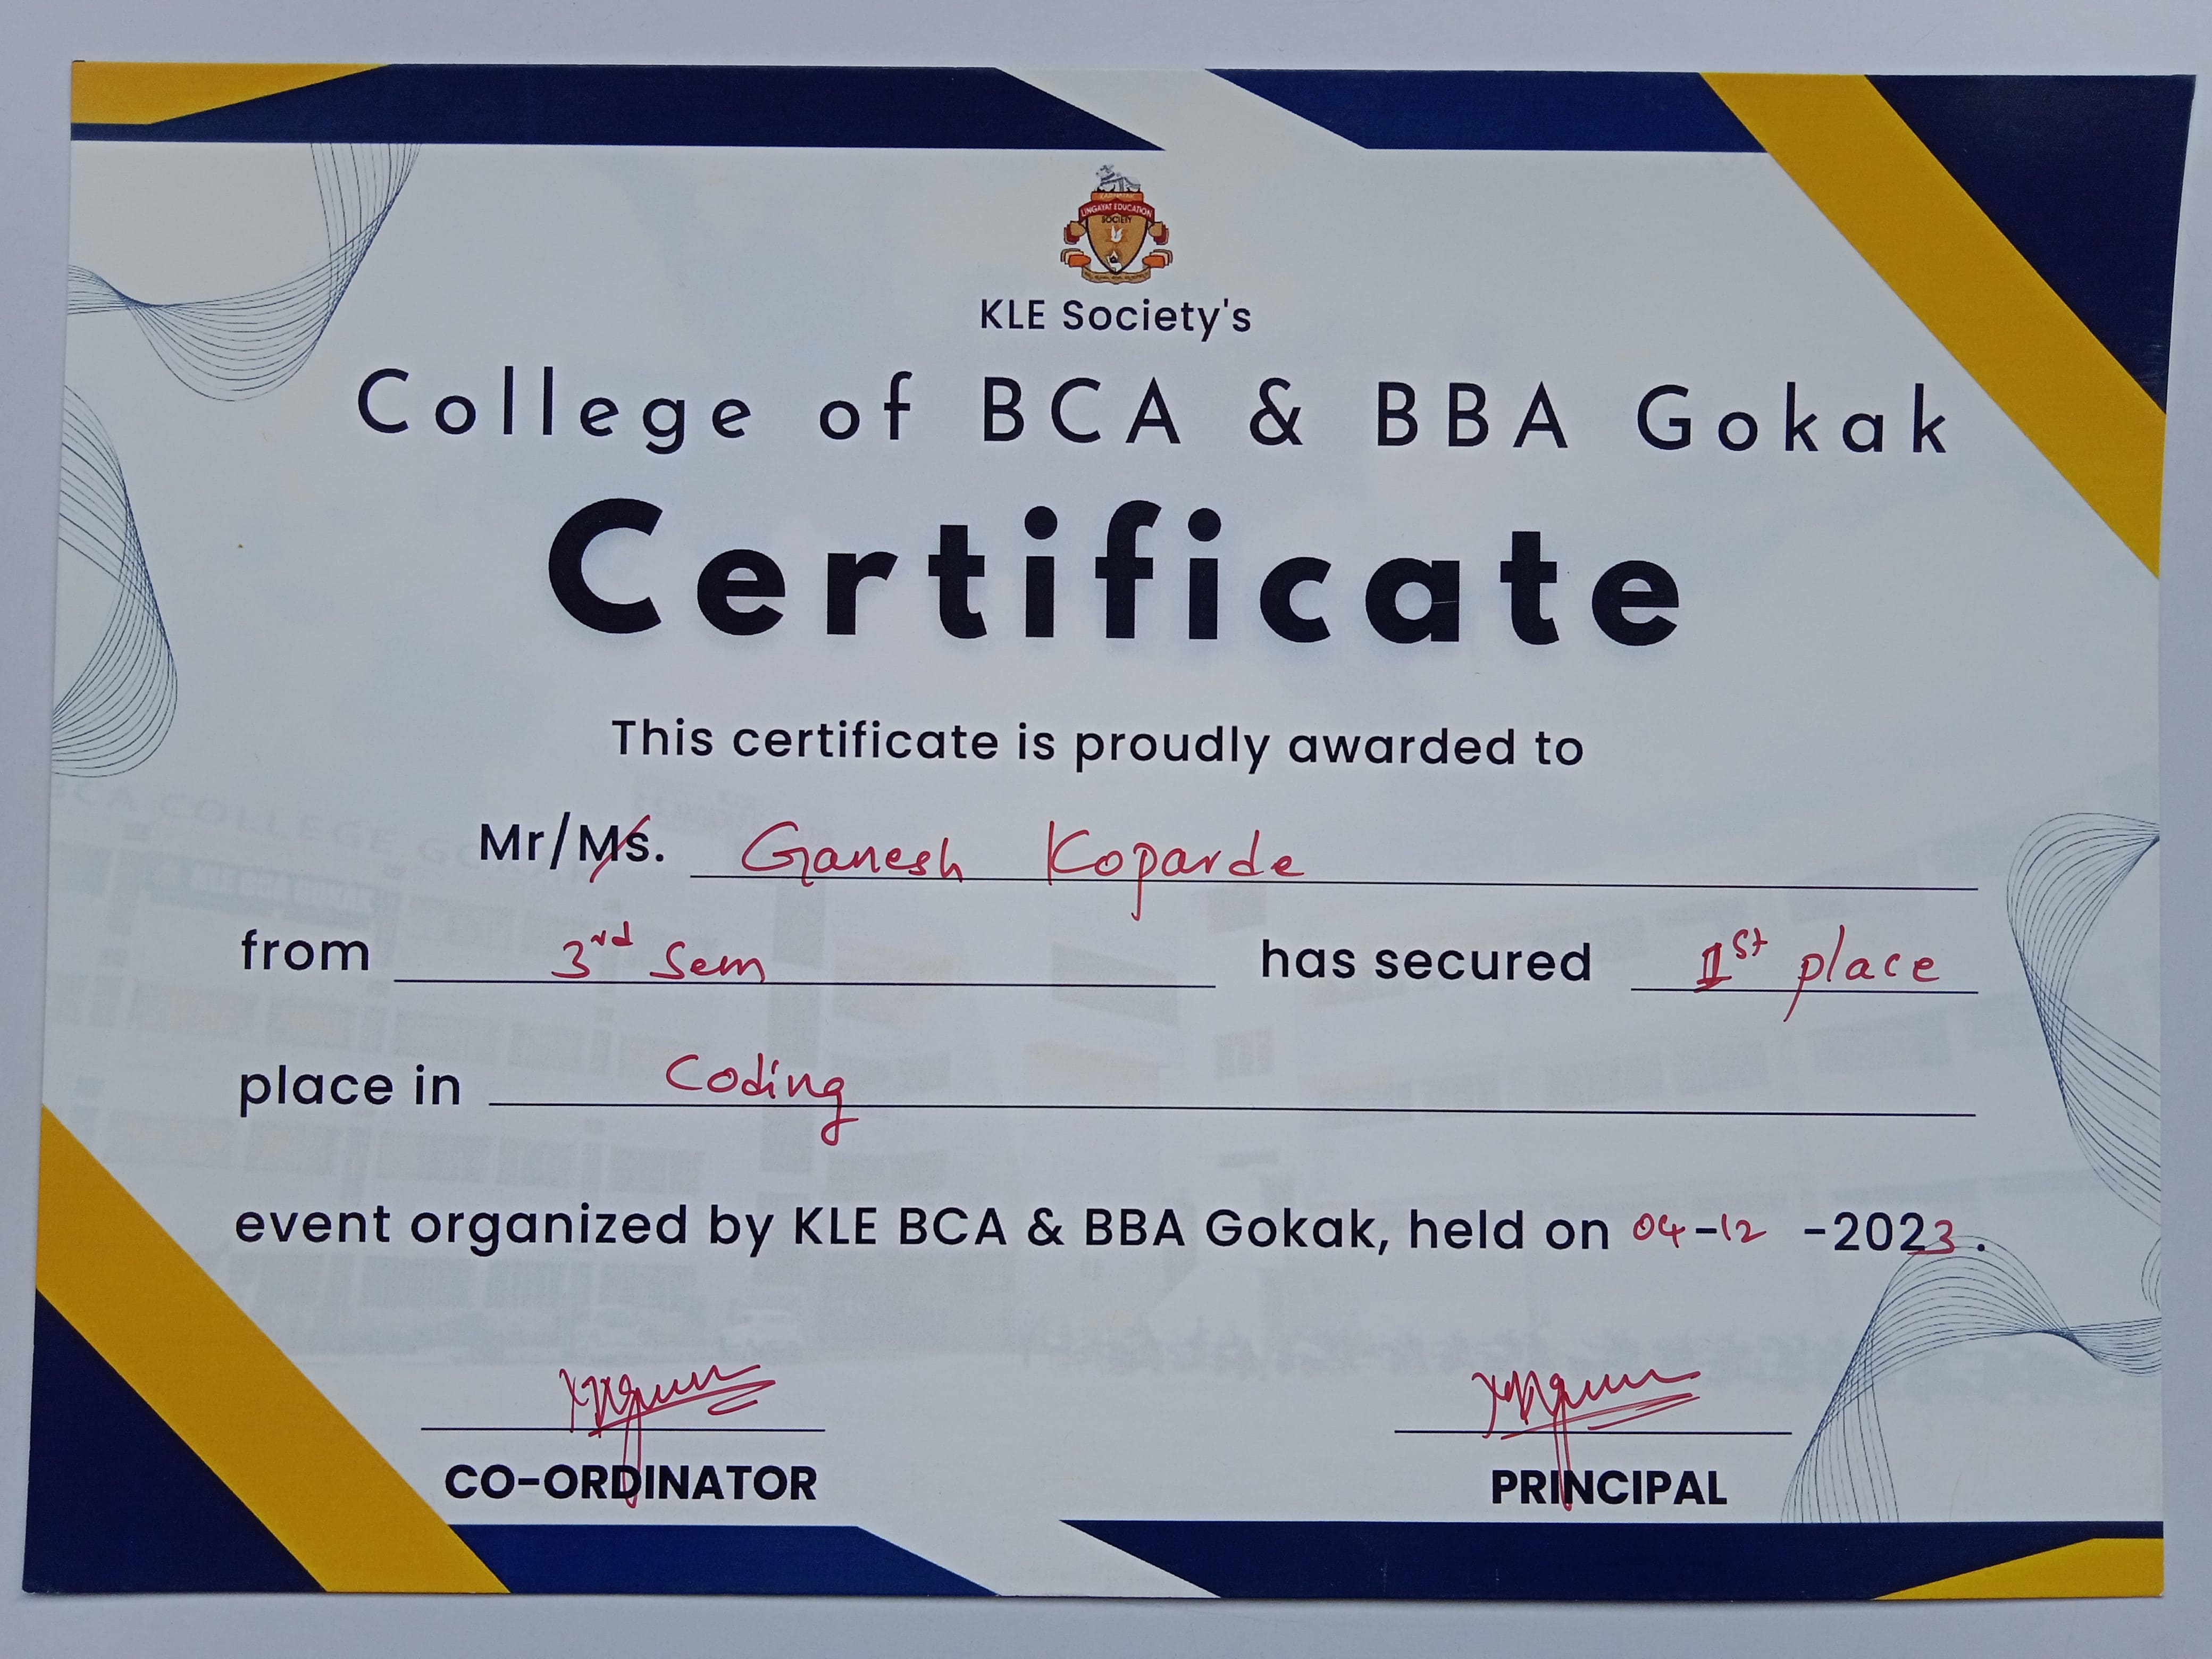 LINGAYAT EDUCATION
SOCIETY
KLE Society's
College of BCA & BBA Gokak
Certificate
This certificate is proudly awarded to
Mr/Ms. Ganesh Koparde
from 3rd Sem has secured 1st place
place in Coding
event organized by KLE BCA & BBA Gokak, held on 04-12 -2023.
CO-ORDINATOR PRINCIPAL